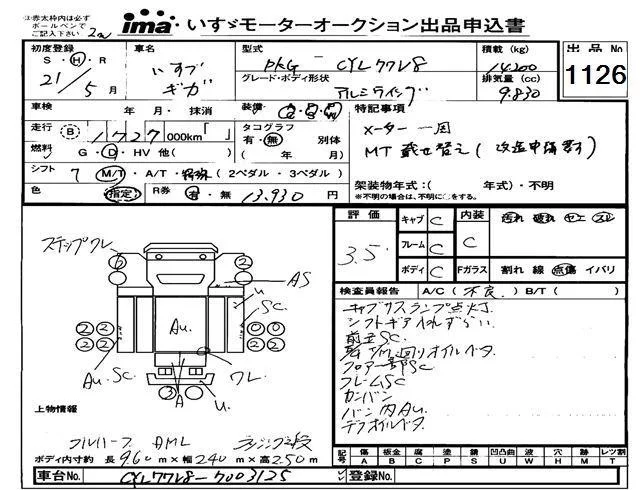 ※赤太枠内は必ず
ボールペンで
ご記入ください
ima いすゞモーターオークション出品申込書
初度登録
S・H・R
21/5月
車名
いすゞ
ギガ
型式
PKG - CYL77V8
グレード・ボディ形状
アルミウイング
積載 (kg)
14200
排気量 (cc)
9.830
出品No
1126
車検 年・月・抹消
装備
走行 B 1727 000km「 」
燃料 G・D・HV 他( )
タコグラフ
有・無 別体
( 年 月)
シフト 7 M/T・A/T・特殊 (2ペダル・3ペダル)
色 指定
R券 有・無 13,930 円
特記事項
メーター一周
MT載せ替え(改造申請済)
架装物年式:( 年式)・不明
※不明の場合は、不明に○をする。
評価
3.5
キャブ C
フレーム C
ボディ C
内装
C
汚れ 破れ ヤエ スレ
Fガラス 割れ 線 点傷 イバリ
検査員報告 A/C(不良) B/T( )
キャブサスランプ点灯.
シフトギア入れずらい.
前立SC.
回りオイルベタ
フロアー一部SC
フレームSC
カンバン
バン内Au.
デフオイルベタ
ステップワレ
2
2
AS
u
SC.
Au.
2 2
2 2
0 0
2 2
Au. SC.
ワレ
A
u.
3
上物情報
フルハーフ AML
ボディ内寸約 長9.60m×幅2.40m×高2.50m
記号 傷 A 板金 B 腐 C 塗 P 錆 S 凹凸曲 U 波 W 穴 H 跡 M レツ割 T
車台No. CYL77V8-7003125
登録No.